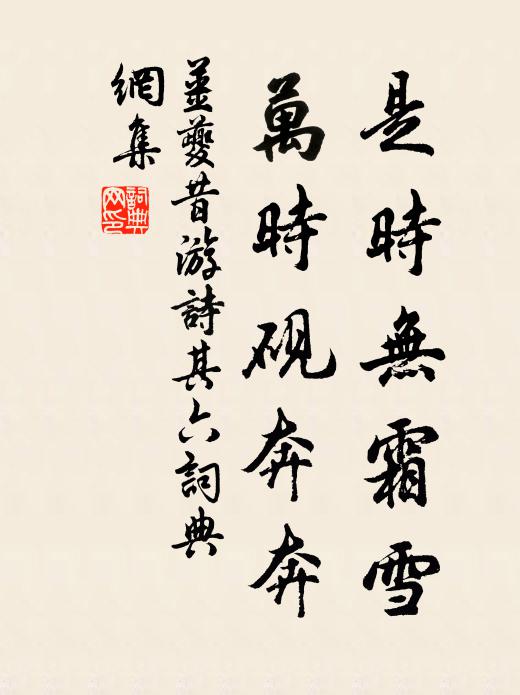 是時無霜雪
萬時砚奔奔
姜夔昔游詩其六詞典
網集
詞典網印